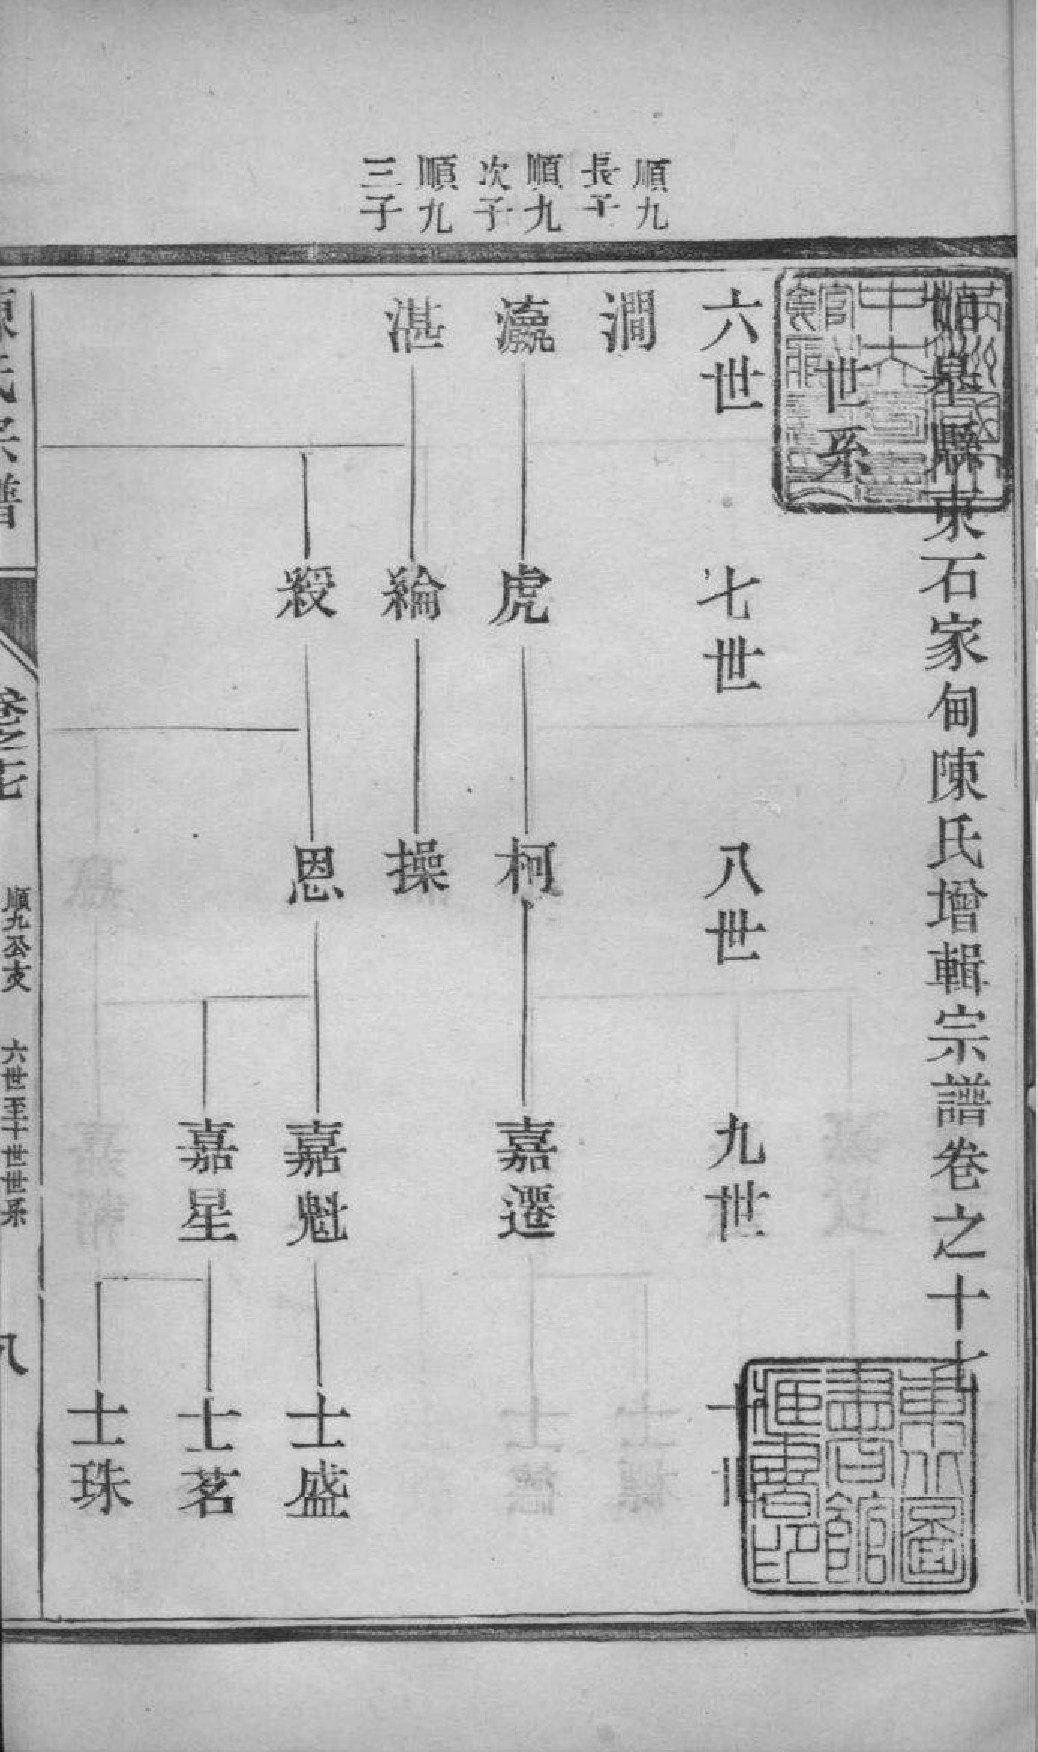 如皋縣東石家甸陳氏增輯宗譜卷之十七
世系
六世 七世 八世 九世 十世
順九長子
澗
順九次子
瀛 虎 柯 嘉遷
順九三子
湛 綸 操
綬 恩 嘉魁 士盛
嘉星 士茗
士珠
陳氏宗譜 卷之十七 順九公支 六世至十世世系 八